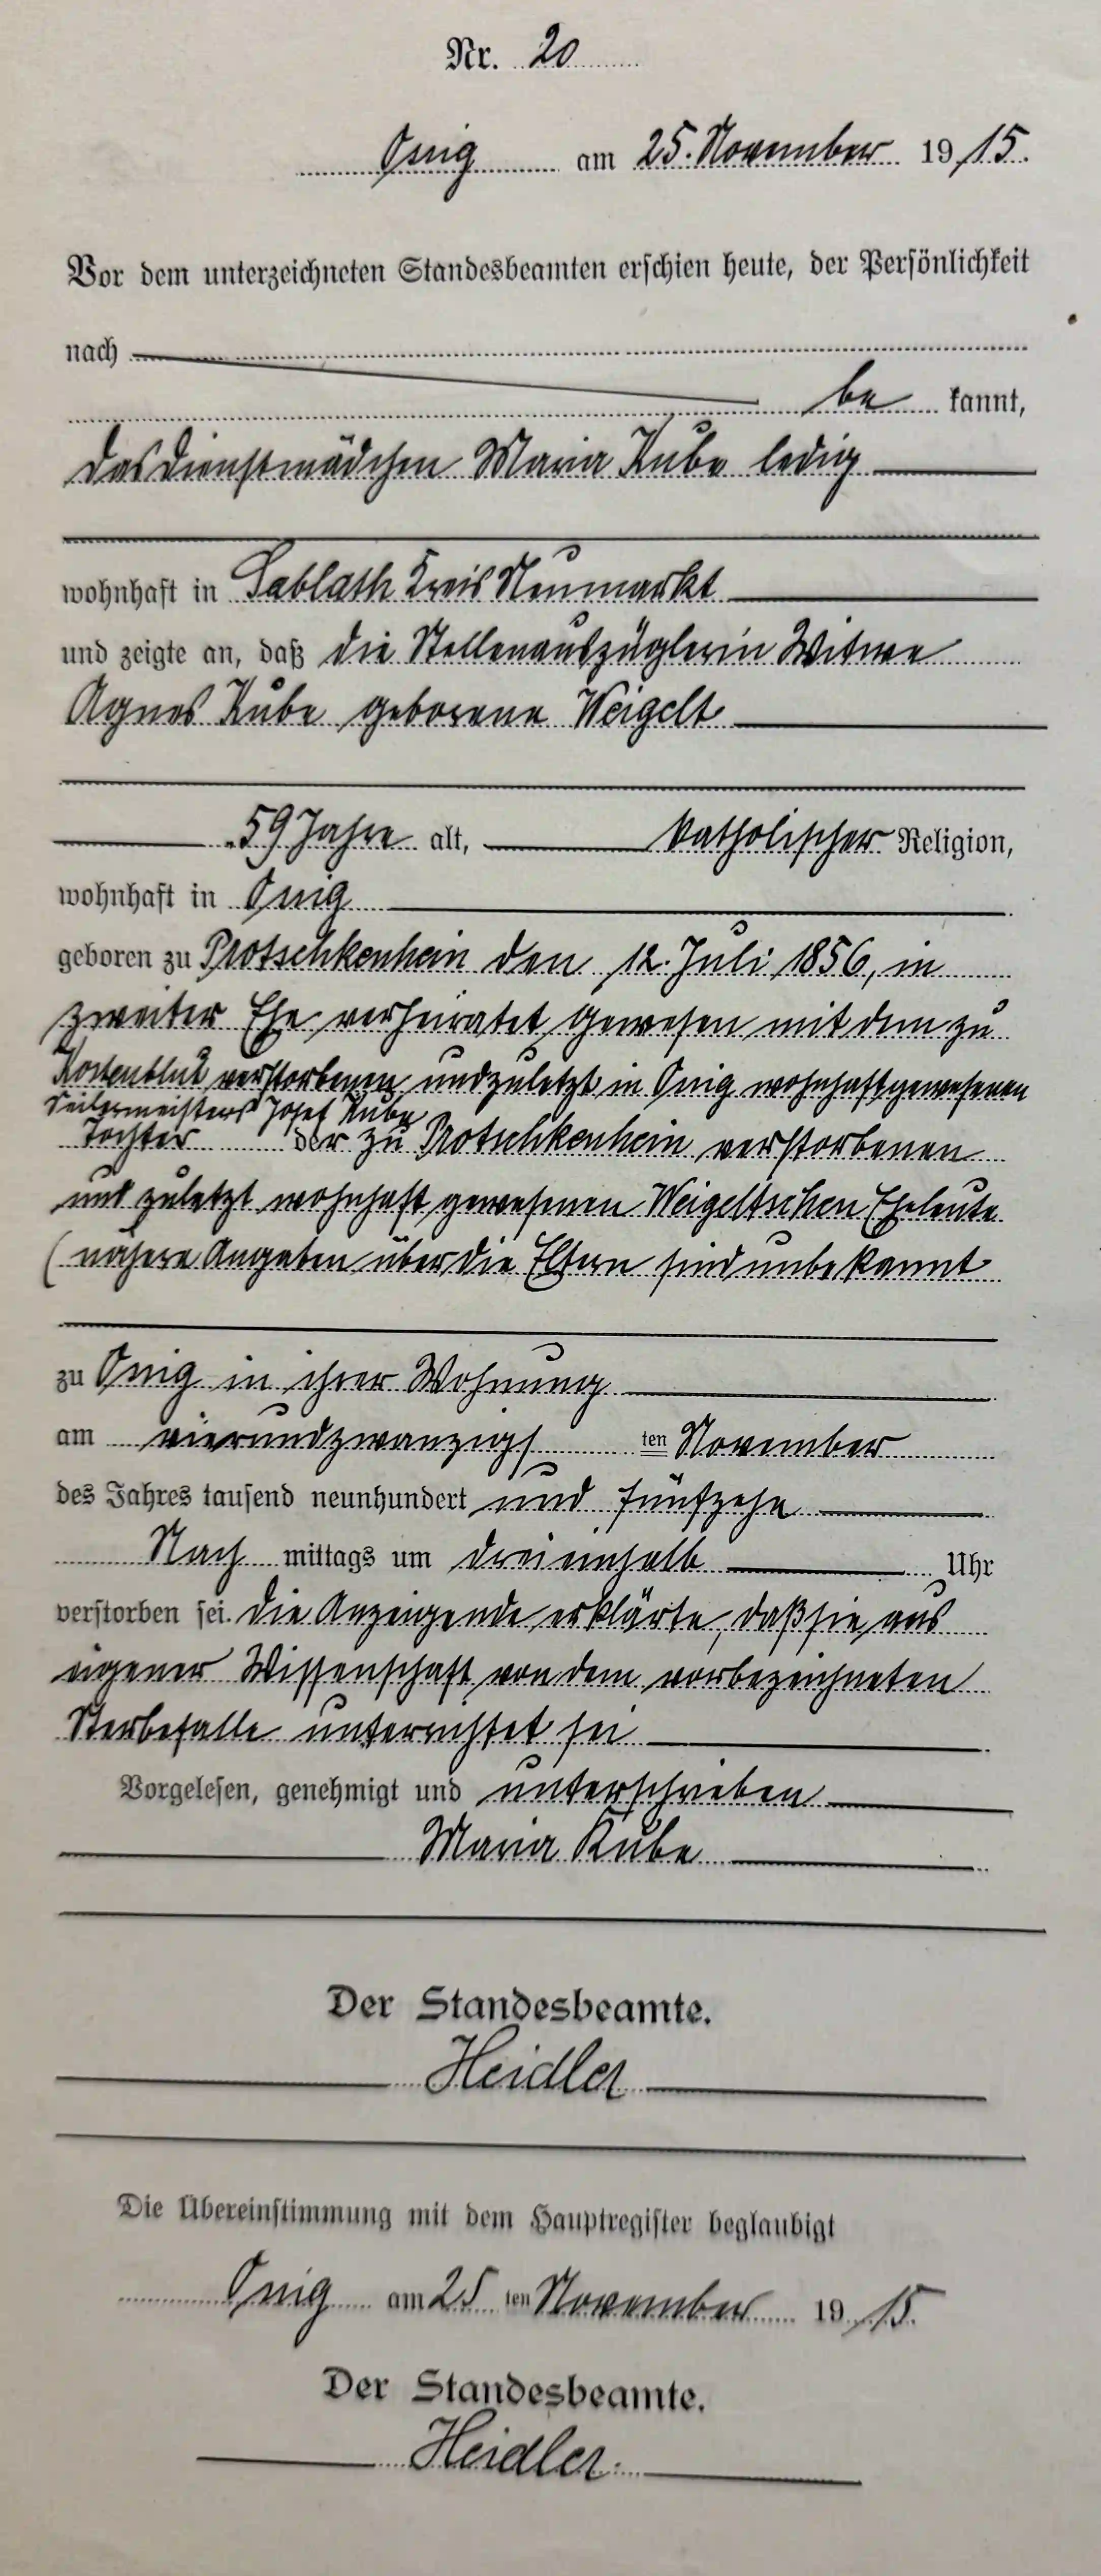 Nr. 20
Ossig am 25. November 1915.
Vor dem unterzeichneten Standesbeamten erschien heute, der Persönlichkeit
nach
be kannt,
das Dienstmädchen Maria Kube ledig
wohnhaft in Sablath Kreis Neumarkt
und zeigte an, daß die Stellenauszüglerin Witwe
Agnes Kube geborene Weigelt
59 Jahre alt, katholischer Religion,
wohnhaft in Ossig
geboren zu Protschkenhein den 12. Juli 1856, in
zweiter Ehe verheiratet gewesen mit dem zu
Kostenblut verstorbenen und zuletzt in Ossig wohnhaft gewesenen
Seilermeisters Josef Kube
Tochter der zu Protschkenhein verstorbenen
und zuletzt wohnhaft gewesenen Weigeltschen Eheleute
(nähere Angaben über die Eltern sind unbekannt
zu Ossig in ihrer Wohnung
am vierundzwanzigs ten November
des Jahres tausend neunhundert und fünfzehn
Nach mittags um dreieinhalb Uhr
verstorben sei. Die Anzeigende erklärte, daß sie aus
eigener Wissenschaft von dem vorbezeichneten
Sterbefalle unterrichtet sei
Vorgelesen, genehmigt und unterschrieben
Maria Kube
Der Standesbeamte.
Heidler
Die Übereinstimmung mit dem Hauptregister beglaubigt
Ossig am 25 ten November 1915.
Der Standesbeamte.
Heidler.